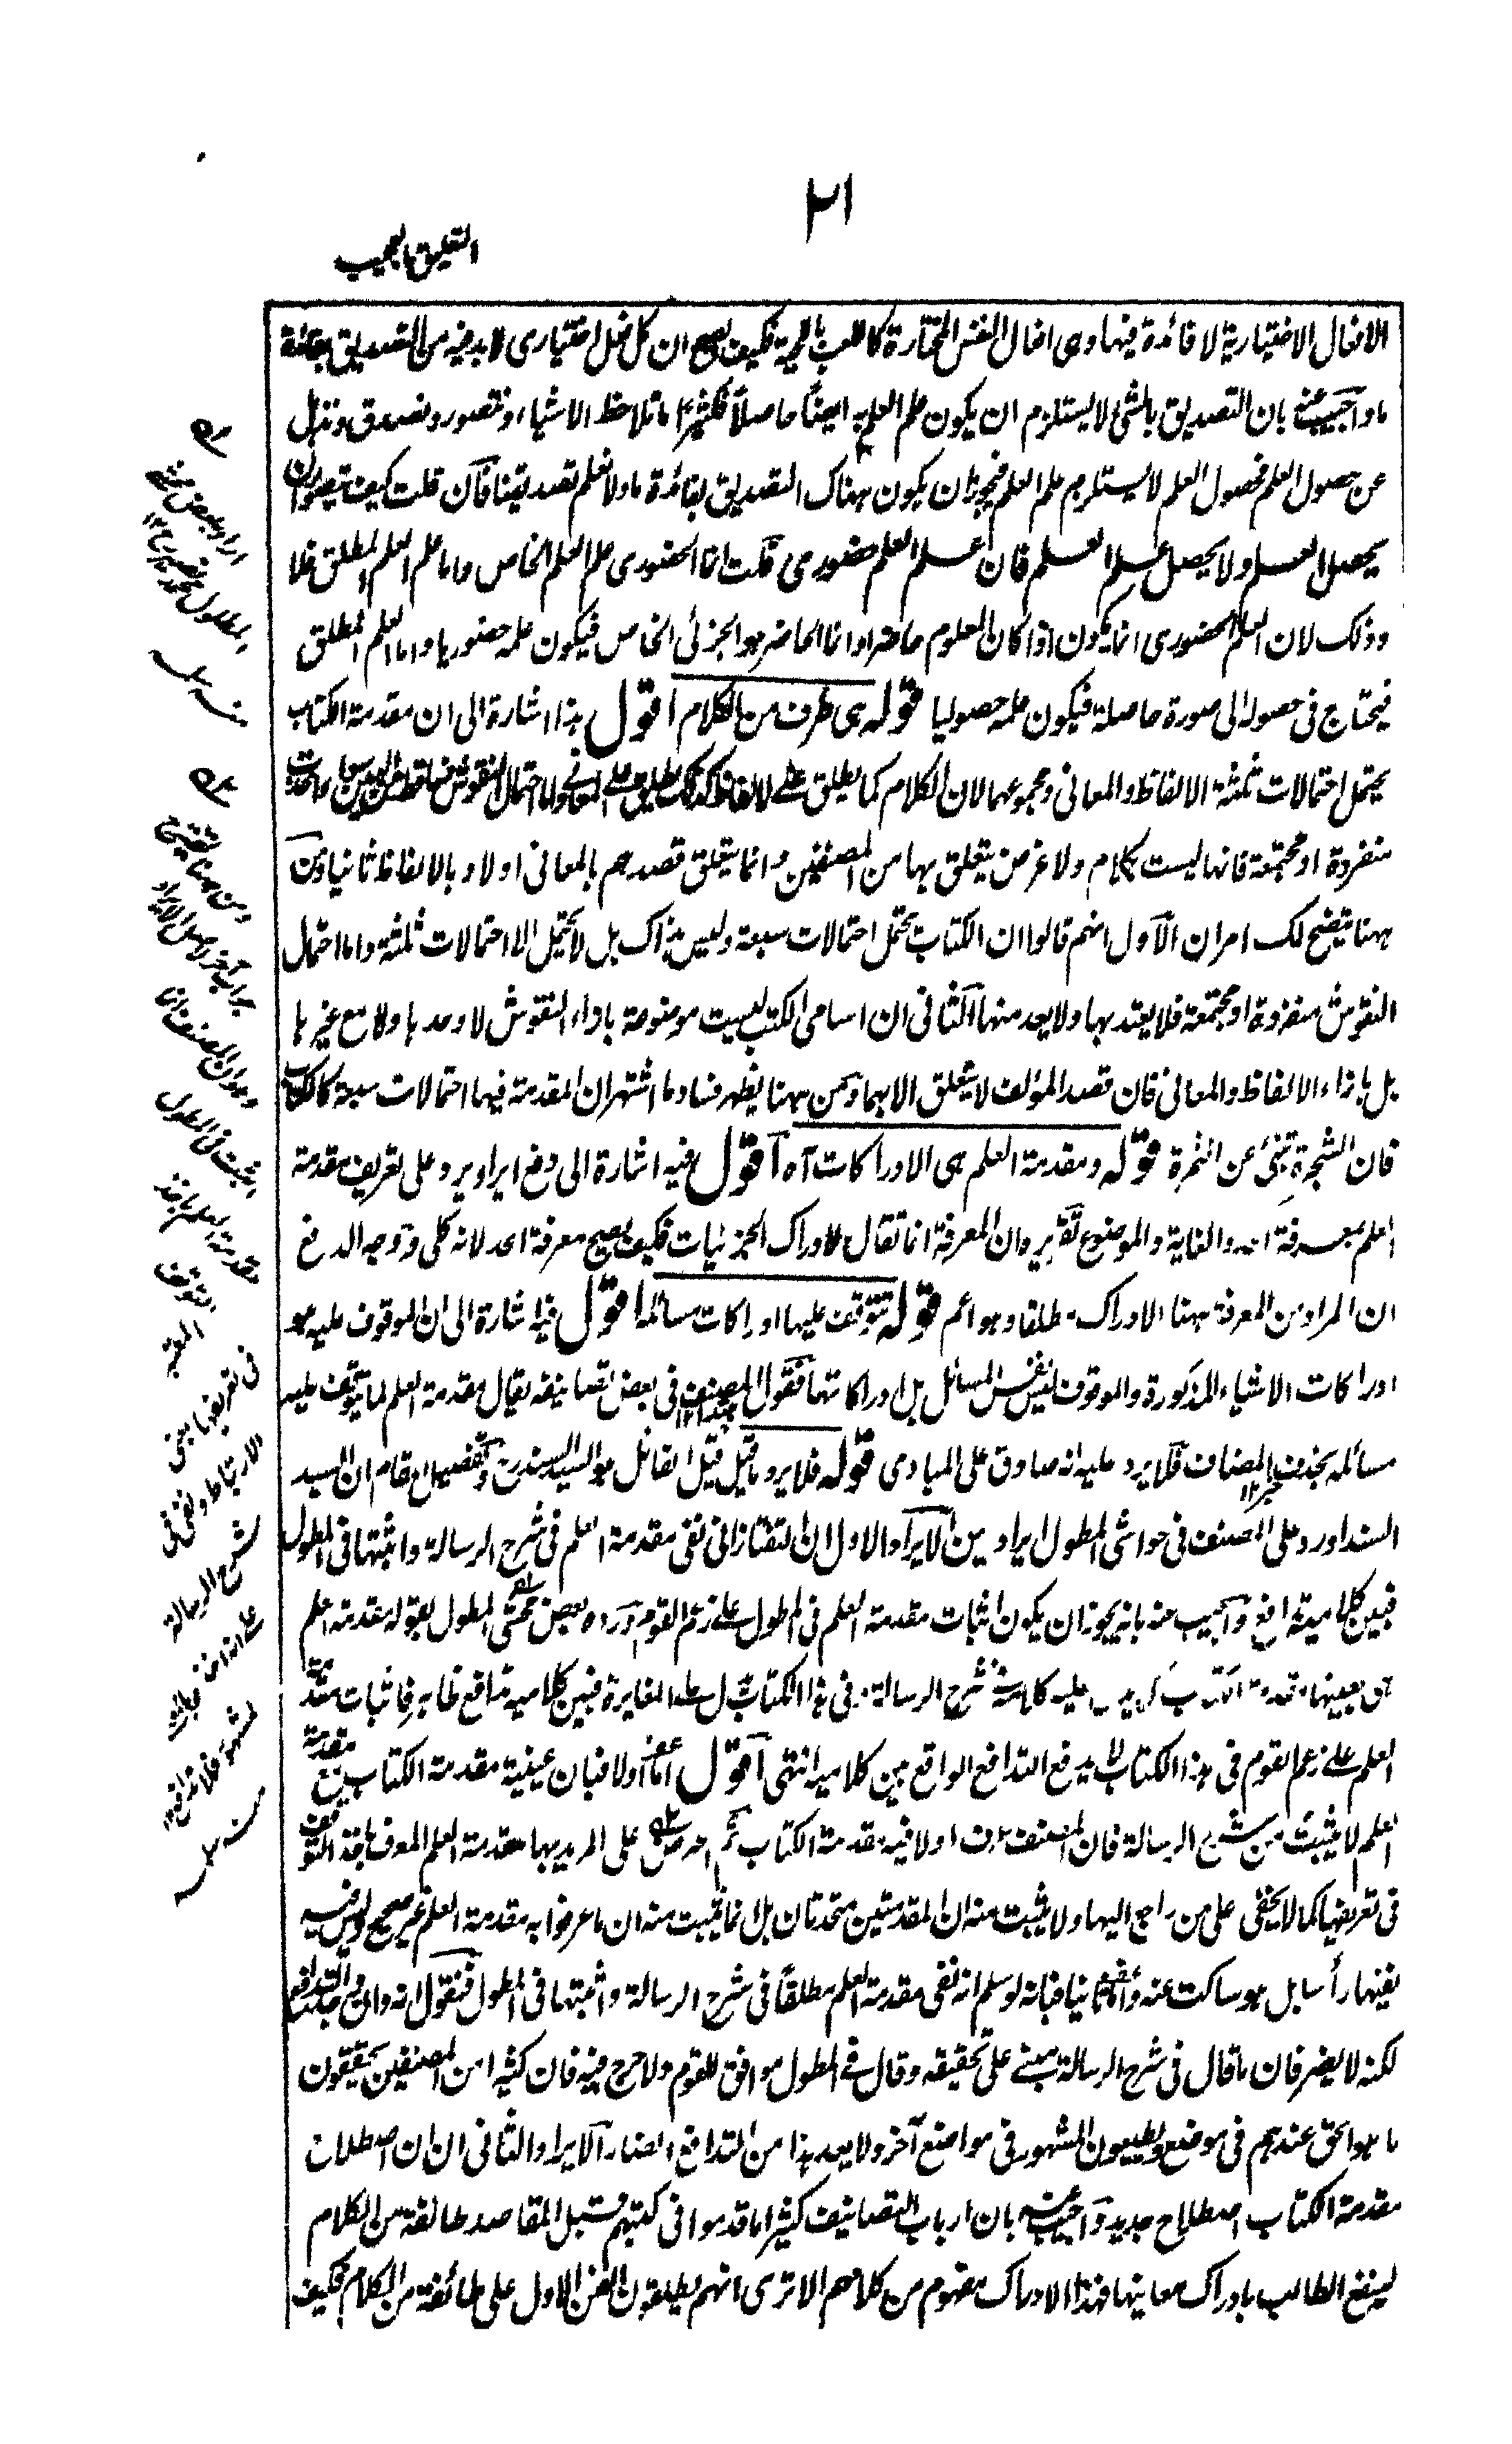 ٢١
التعليق العجيب
الافعال الاختيارية لا فائدة فيها وهى افعال النفس المختارة كاللعب باللحية فكيف يصح ان كل فعل اختيارى لا بد فيه من التصديق بفائدة
ما واجيب عنه بان التصديق بالشئ لا يستلزم ان يكون علم العلم به ايضاً حاصلاً فكثيرا ما تلاحظ الاشياء ونتصور ونصدق ونذهل
عن حصول العلم فحصول العلم لا يستلزم علم العلم فيجوز ان يكون هناك التصديق بفائدة ما ولا نعلم تصديقنا فان قلت كيف يتصور ان
يحصل العلم ولا يحصل علم العلم فان علم العلم حضورى قلت انما الحضورى علم العلم الخاص واما علم العلم المطلق فلا
وذلك لان العلم الحضورى انما يكون اذا كان المعلوم حاضرا وانما الحاضر هو الجزئى الخاص فيكون علمه حضوريا واما العلم المطلق
فيحتاج فى حصوله الى صورة حاصلة فيكون علمه حصوليا قوله هى طرف من الكلام اقول هذا اشارة الى ان مقدمة الكتاب
يحتمل احتمالات ثلثة الالفاظ والمعانى ومجموعهما لان الكلام كما يطلق على الالفاظ كذلك يطلق على المعانى واما احتمال النقوش فساقط
منفردة او مجتمعة فانها ليست بكلام ولا غرض يتعلق بها من المصنفين وانما يتعلق قصدهم بالمعانى اولا وبالالفاظ ثانيا ومن
ههنا يتضح لك امران الاول انهم قالوا ان الكتاب يحتمل احتمالات سبعة وليس بذاك بل لا يحتمل الا احتمالات ثلثة واما احتمال
النقوش منفردة او مجتمعة فلا يعتد بها ولا يعد منها الثانى ان اسامى الكتب ليست موضوعة بازاء النقوش لا وحدها ولا مع غيرها
بل بازاء الالفاظ والمعانى فان قصد المؤلف لا يتعلق الا بهما ومن ههنا يظهر فساد ما اشتهر ان المقدمة فيها احتمالات سبعة كالكتاب
فان الشجرة تنبئ عن الثمرة قوله ومقدمة العلم هى الادراكات آه اقول فيه اشارة الى دفع ايراد يرد على تعريف مقدمة
العلم بمعرفة الحد والغاية والموضوع تقريره ان المعرفة انما تقال لادراك الجزئيات فكيف يصح معرفة الحد لانه كلى ووجه الدفع
ان المراد من المعرفة ههنا الادراك مطلقا وهو اعم قوله تتوقف عليها ادراكات مسائله اقول فيه اشارة الى ان الموقوف عليه هو
ادراكات الاشياء المذكورة والموقوف ليس نفس المسائل بل ادراكاتها فقول المصنف فى بعض تصانيفه يقال مقدمة العلم لما يتوقف عليه
مسائله بحذف المضاف فلا يرد عليه انه صادق على المبادى قوله فلا يرد ما قيل قيل القائل هو السيد السند وتفصيل المقام ان السيد
السند اورد على المصنف فى حواشى المطول ايرادين الايراد الاول ان التفتازانى نفى مقدمة العلم فى شرح الرسالة واثبتها فى المطول
فبين كلاميه تدافع واجيب عنه بانه يجوز ان يكون اثبات مقدمة العلم فى المطول على زعم القوم ورده بعض محشى المطول بقوله مقدمة العلم
هى بعينها مقدمة الكتاب كما يدل عليه كلامه فى شرح الرسالة وفى هذا الكتاب يدل على المغايرة فبين كلاميه تدافع ظاهر فاثبات مقدمة
العلم على زعم القوم فى هذا الكتاب لا يدفع التدافع الواقع بين كلاميه انتهى اقول اما اولا فبان عينية مقدمة الكتاب مع مقدمة
العلم لا يثبت من شرح الرسالة فان المصنف عرف اولا فيه مقدمة الكتاب ثم اعترض على المريد بها مقدمة العلم المعرف باخذ التوقف
فى تعريفها كما لا يخفى على من راجع اليها ولا يثبت منه ان المقدمتين متحدتان بل انما يثبت منه ان ما عرفوا به مقدمة العلم غير صحيح وليس فيه
نفيها رأسا بل هو ساكت عنه واما ثانيا فبانه لو سلم انه نفى مقدمة العلم مطلقاً فى شرح الرسالة واثبتها فى المطول فنقول انه وان وجد التدافع
لكنه لا يضر فان ما قال فى شرح الرسالة مبنى على تحقيقه وقال فى المطول موافق للقوم ولا حرج فيه فان كثيرا من المصنفين يحققون
ما هو الحق عندهم فى موضع ويطيعون المشهور فى مواضع آخر ولا يعد هذا من التدافع الضار الايراد الثانى ان اصطلاح
مقدمة الكتاب اصطلاح جديد واجيب عنه بان ارباب التصانيف كثيرا ما قدموا فى كتبهم قبل المقاصد طائفة من الكلام
لينفع الطالب بادراك معانيها فهذا الادراك مفهوم من كلامهم الا ترى انهم يطلقون الفن الاول على طائفة من الكلام فكيف
ومن ههنا يتضح
وهو ان المصنف
يثبت فى المطول
مقدمة العلم باخذ
التوقف
المعتبر
فى تعريفها بمعنى
الارتباط ونفى فى
شرح الرسالة